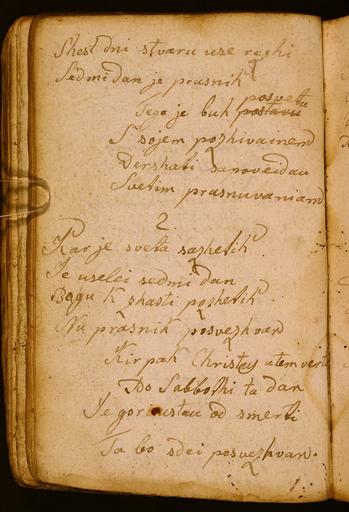 Shest dni stvaru use rezhi
Sedmi dan je prasnik
posvetu
Tega je buh postavu
S' sojem pozhivainem
Dershati sapoveidau
Svetim prasnuvaniam
2
Kar je sveta sazhetik
Je uselei sedmi dan
Bogu k zhasti pozhetik
Nu prasnik posvezhvan
Kir pak Christus utem verti
Do Sabbothi ta dan
Je gori ustau od smerti
Ta bo sdei posvezhvan.